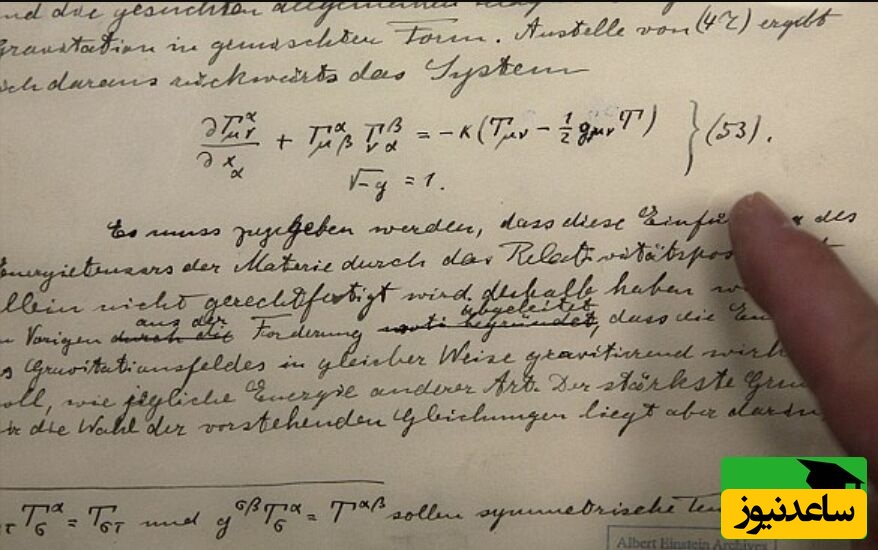 und die gesuchten allgemeinen
Gravitation in gemischter Form. Anstelle von (47) ergibt
sich daraus rückwärts das System
∂Γ^α_{μν}/∂x_α + Γ^α_{μβ} Γ^β_{να} = -κ(T_{μν} - 1/2 g_{μν} T) } (53).
√-g = 1.
Es muss zugegeben werden, dass diese des
Energietensors der Materie durch das
allein nicht gerechtfertigt wird. deshalb haben
abgeleitet
aus der
Vorigen durch die Forderung begründet, dass die
Gravitationsfeldes in gleicher Weise gravitierend
soll, wie jegliche Energie anderer Art. Der stärkste
die Wahl der vorstehenden Gleichungen liegt aber darin,
T^α_σ = T_{στ} und g^{σβ} T^α_σ = T^{αβ} sollen symmetrische
Albert Einstein Archives
ساعدنیوز